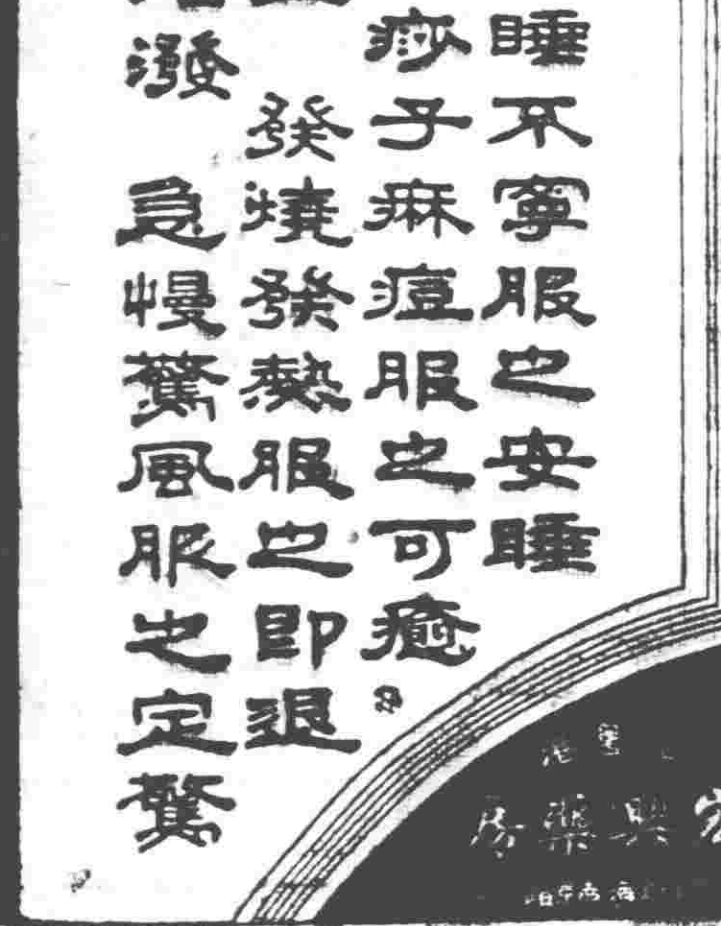 睡不寧服之安睡
痧子麻痘服之可癒
發燒發熱服之即退
潑 急慢驚風服之定驚
房藥興宏